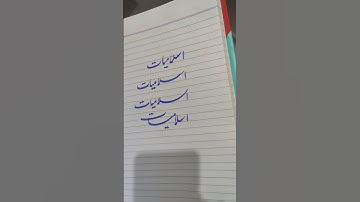 اسلامیات
اسلامیات
اسلامیات
اسلامیات